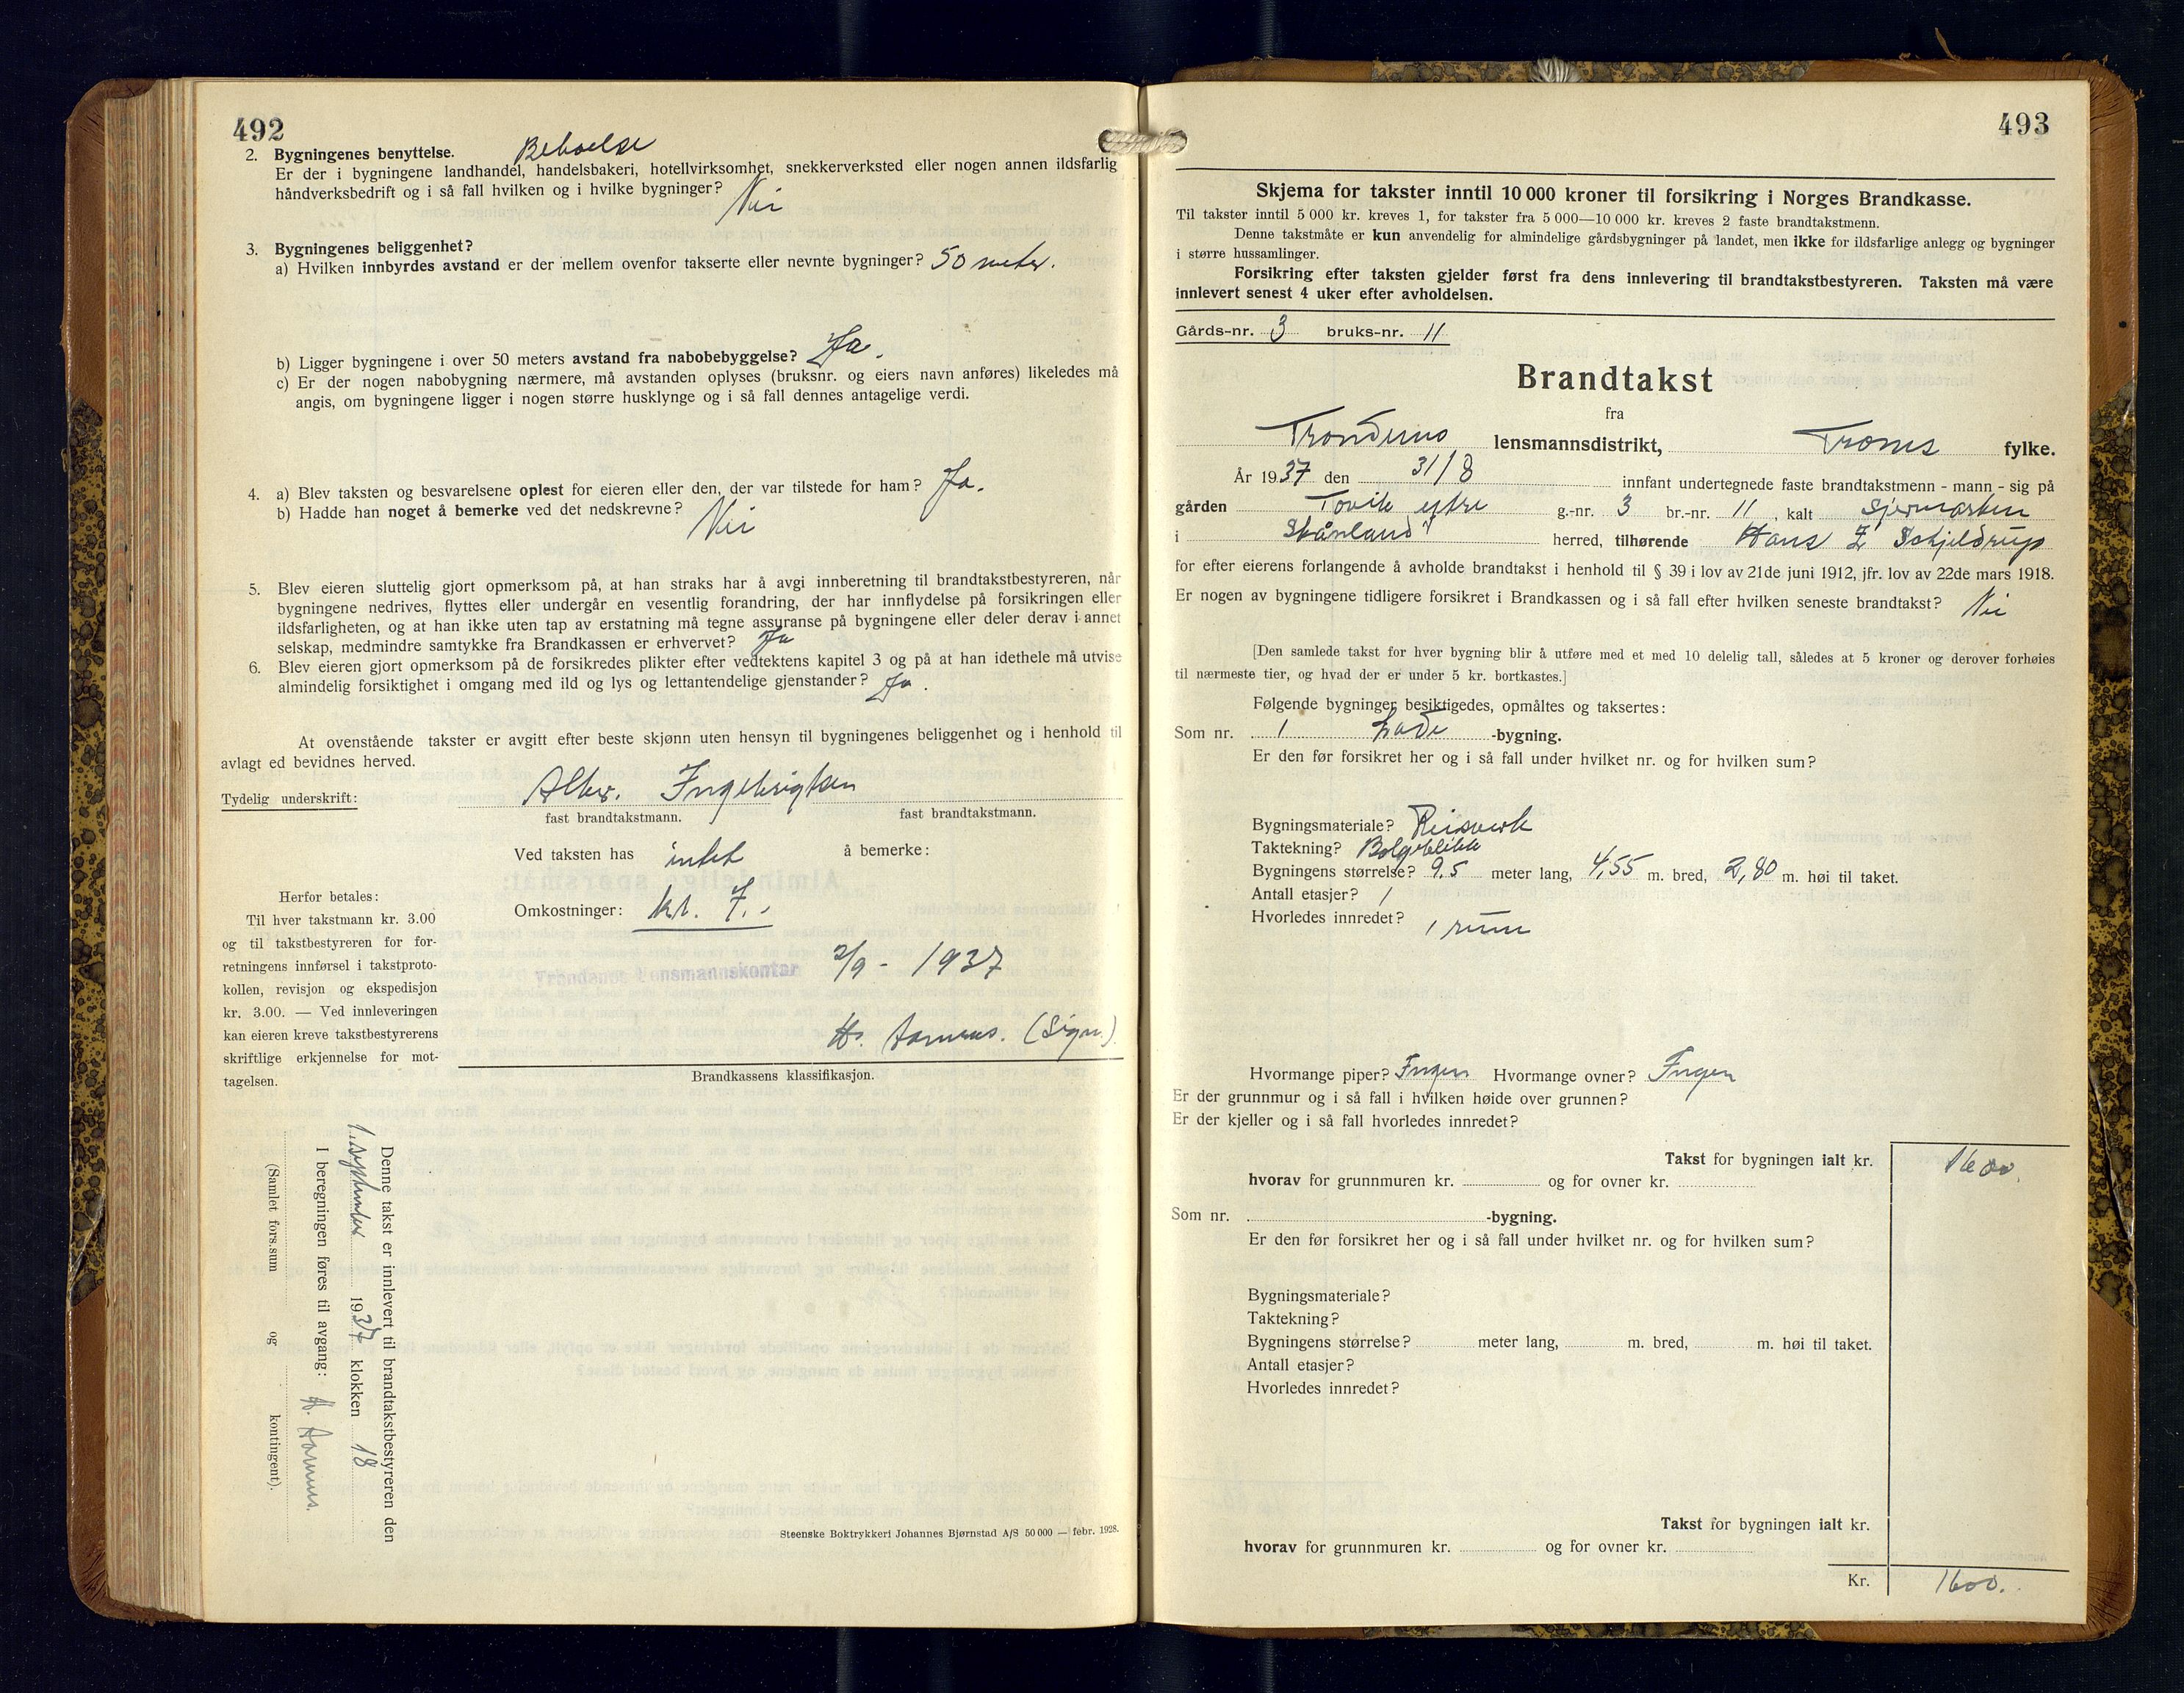 492
2. Bygningenes benyttelse. Beboelse
Er der i bygningene landhandel, handelsbakeri, hotellvirksomhet, snekkerverksted eller nogen annen ildsfarlig
håndverksbedrift og i så fall hvilken og i hvilke bygninger? Nei
3. Bygningenes beliggenhet?
a) Hvilken innbyrdes avstand er der mellem ovenfor takserte eller nevnte bygninger? 50 meter.
b) Ligger bygningene i over 50 meters avstand fra nabobebyggelse? Ja.
c) Er der nogen nabobygning nærmere, må avstanden oplyses (bruksnr. og eiers navn anføres) likeledes må
angis, om bygningene ligger i nogen større husklynge og i så fall dennes antagelige verdi.
4. a) Blev taksten og besvarelsene oplest for eieren eller den, der var tilstede for ham? Ja.
b) Hadde han noget å bemerke ved det nedskrevne? Nei
5. Blev eieren sluttelig gjort opmerksom på, at han straks har å avgi innberetning til brandtakstbestyreren, når
bygningene nedrives, flyttes eller undergår en vesentlig forandring, der har innflydelse på forsikringen eller
ildsfarligheten, og at han ikke uten tap av erstatning må tegne assuranse på bygningene eller deler derav i annet
selskap, medmindre samtykke fra Brandkassen er erhvervet? Ja
6. Blev eieren gjort opmerksom på de forsikredes plikter efter vedtektens kapitel 3 og på at han idethele må utvise
almindelig forsiktighet i omgang med ild og lys og lettantendelige gjenstander? Ja.
At ovenstående takster er avgitt efter beste skjønn uten hensyn til bygningenes beliggenhet og i henhold til
avlagt ed bevidnes herved.
Tydelig underskrift: Albr. Ingebrigtsen
fast brandtakstmann. fast brandtakstmann.
Ved taksten has intet å bemerke:
Omkostninger: kr. 7.-
Trondenes Lensmannskontor 2/9 - 1937
H. Aarnes. (Sign.)
Herfor betales:
Til hver takstmann kr. 3.00
og til takstbestyreren for for-
retningens innførsel i takstproto-
kollen, revisjon og ekspedisjon
kr. 3.00. — Ved innleveringen
kan eieren kreve takstbestyrerens
skriftlige erkjennelse for mot-
tagelsen.
Brandkassens klassifikasjon.
Denne takst er innlevert til brandtakstbestyreren den
1. september 1937 klokken 18
I beregningen føres til avgang: H. Aarnes.
(Samlet fors.sum og kontingent).
Steenske Boktrykkeri Johannes Bjørnstad A/S 50 000 — febr. 1928.
493
Skjema for takster inntil 10 000 kroner til forsikring i Norges Brandkasse.
Til takster inntil 5 000 kr. kreves 1, for takster fra 5 000—10 000 kr. kreves 2 faste brandtakstmenn.
Denne takstmåte er kun anvendelig for almindelige gårdsbygninger på landet, men ikke for ildsfarlige anlegg og bygninger
i større hussamlinger.
Forsikring efter taksten gjelder først fra dens innlevering til brandtakstbestyreren. Taksten må være
innlevert senest 4 uker efter avholdelsen.
Gårds-nr. 3 bruks-nr. 11
Brandtakst
fra
Trondenes lensmannsdistrikt, Troms fylke.
År 1937 den 31/8 innfant undertegnede faste brandtakstmenn - mann - sig på
gården Tovik ytre g.-nr. 3 br.-nr. 11, kalt
i Skånland herred, tilhørende Hans Z Schjeldrup
for efter eierens forlangende å avholde brandtakst i henhold til § 39 i lov av 21de juni 1912, jfr. lov av 22de mars 1918.
Er nogen av bygningene tidligere forsikret i Brandkassen og i så fall efter hvilken seneste brandtakst? Nei
[Den samlede takst for hver bygning blir å utføre med et med 10 delelig tall, således at 5 kroner og derover forhøies
til nærmeste tier, og hvad der er under 5 kr. bortkastes.]
Følgende bygninger besiktigedes, opmåltes og taksertes:
Som nr. 1 Lade -bygning.
Er den før forsikret her og i så fall under hvilket nr. og for hvilken sum?
Bygningsmateriale? Reisverk
Taktekning? Bølgeblikk
Bygningens størrelse? 9.5 meter lang, 4,55 m. bred, 2,80 m. høi til taket.
Antall etasjer? 1
Hvorledes innredet? 1 rum
Hvormange piper? Ingen Hvormange ovner? Ingen
Er der grunnmur og i så fall i hvilken høide over grunnen?
Er der kjeller og i så fall hvorledes innredet?
Takst for bygningen ialt kr. 1600
hvorav for grunnmuren kr. og for ovner kr.
Som nr. -bygning.
Er den før forsikret her og i så fall under hvilket nr. og for hvilken sum?
Bygningsmateriale?
Taktekning?
Bygningens størrelse? meter lang, m. bred, m. høi til taket.
Antall etasjer?
Hvorledes innredet?
Takst for bygningen ialt kr.
hvorav for grunnmuren kr. og for ovner kr.
Kr. 1600.